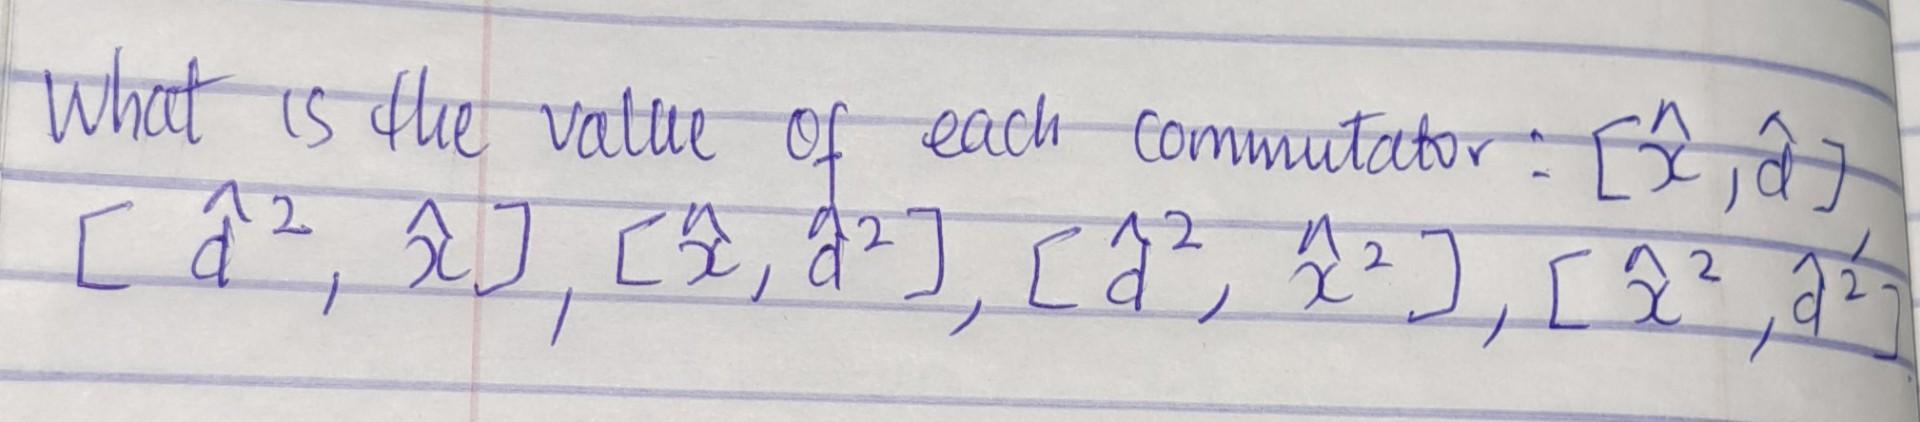 What is the value of each commutator : [x̂, d̂],
[d̂², x̂], [x̂, d̂²], [d̂², x̂²], [x̂², d̂²].